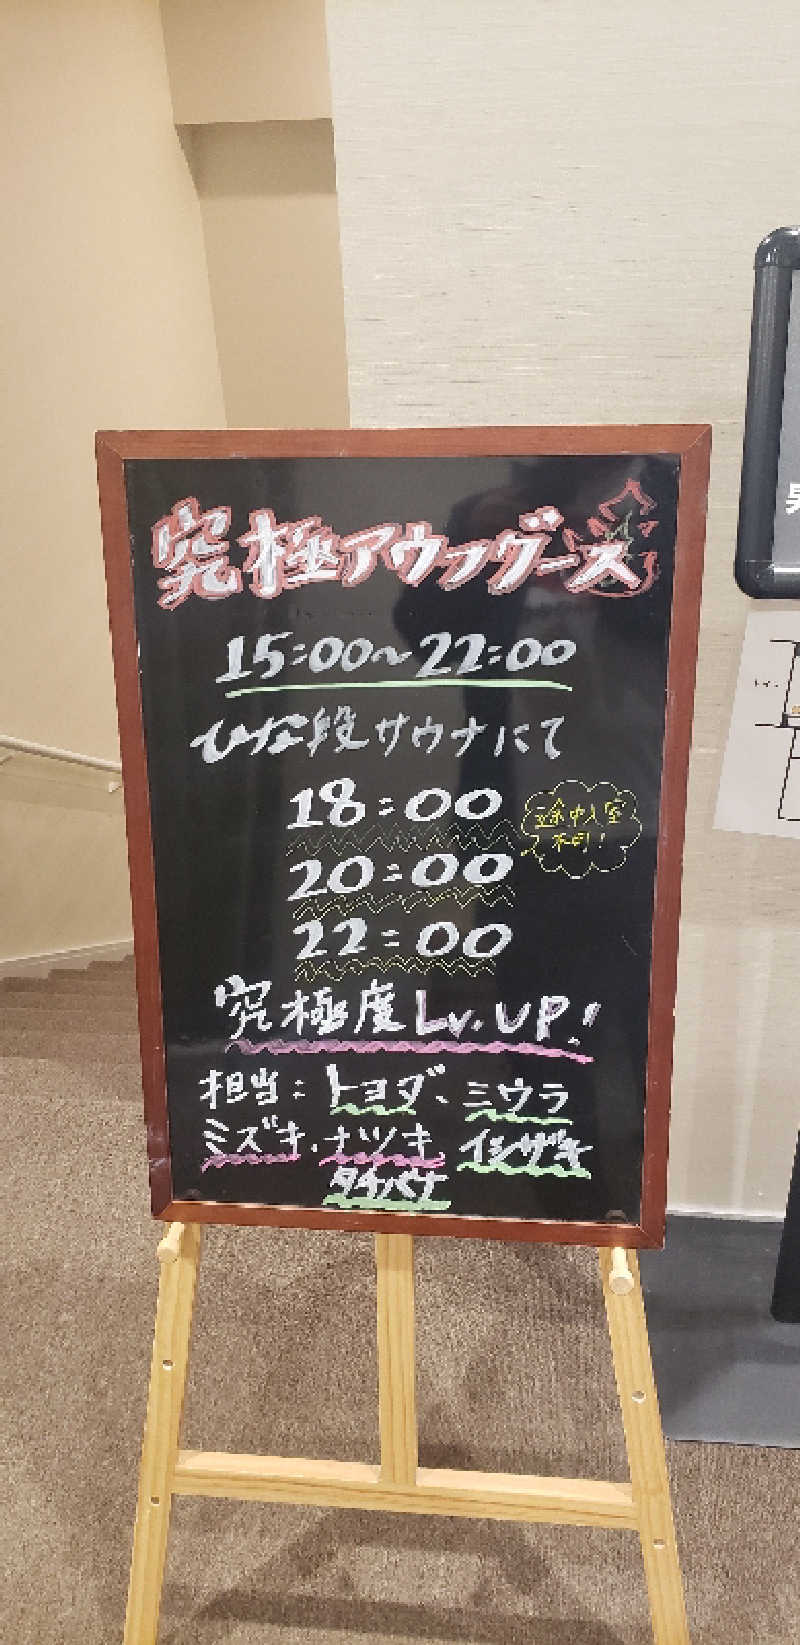 究極アウフグース
15:00~22:00
ひな段サウナにて
18:00
途中入室
不可!
20:00
22:00
究極度Lv.UP!
担当:トヨダ、ミウラ
ミズキ、ナツキ、イシザキ
タチバナ
男
トイレ